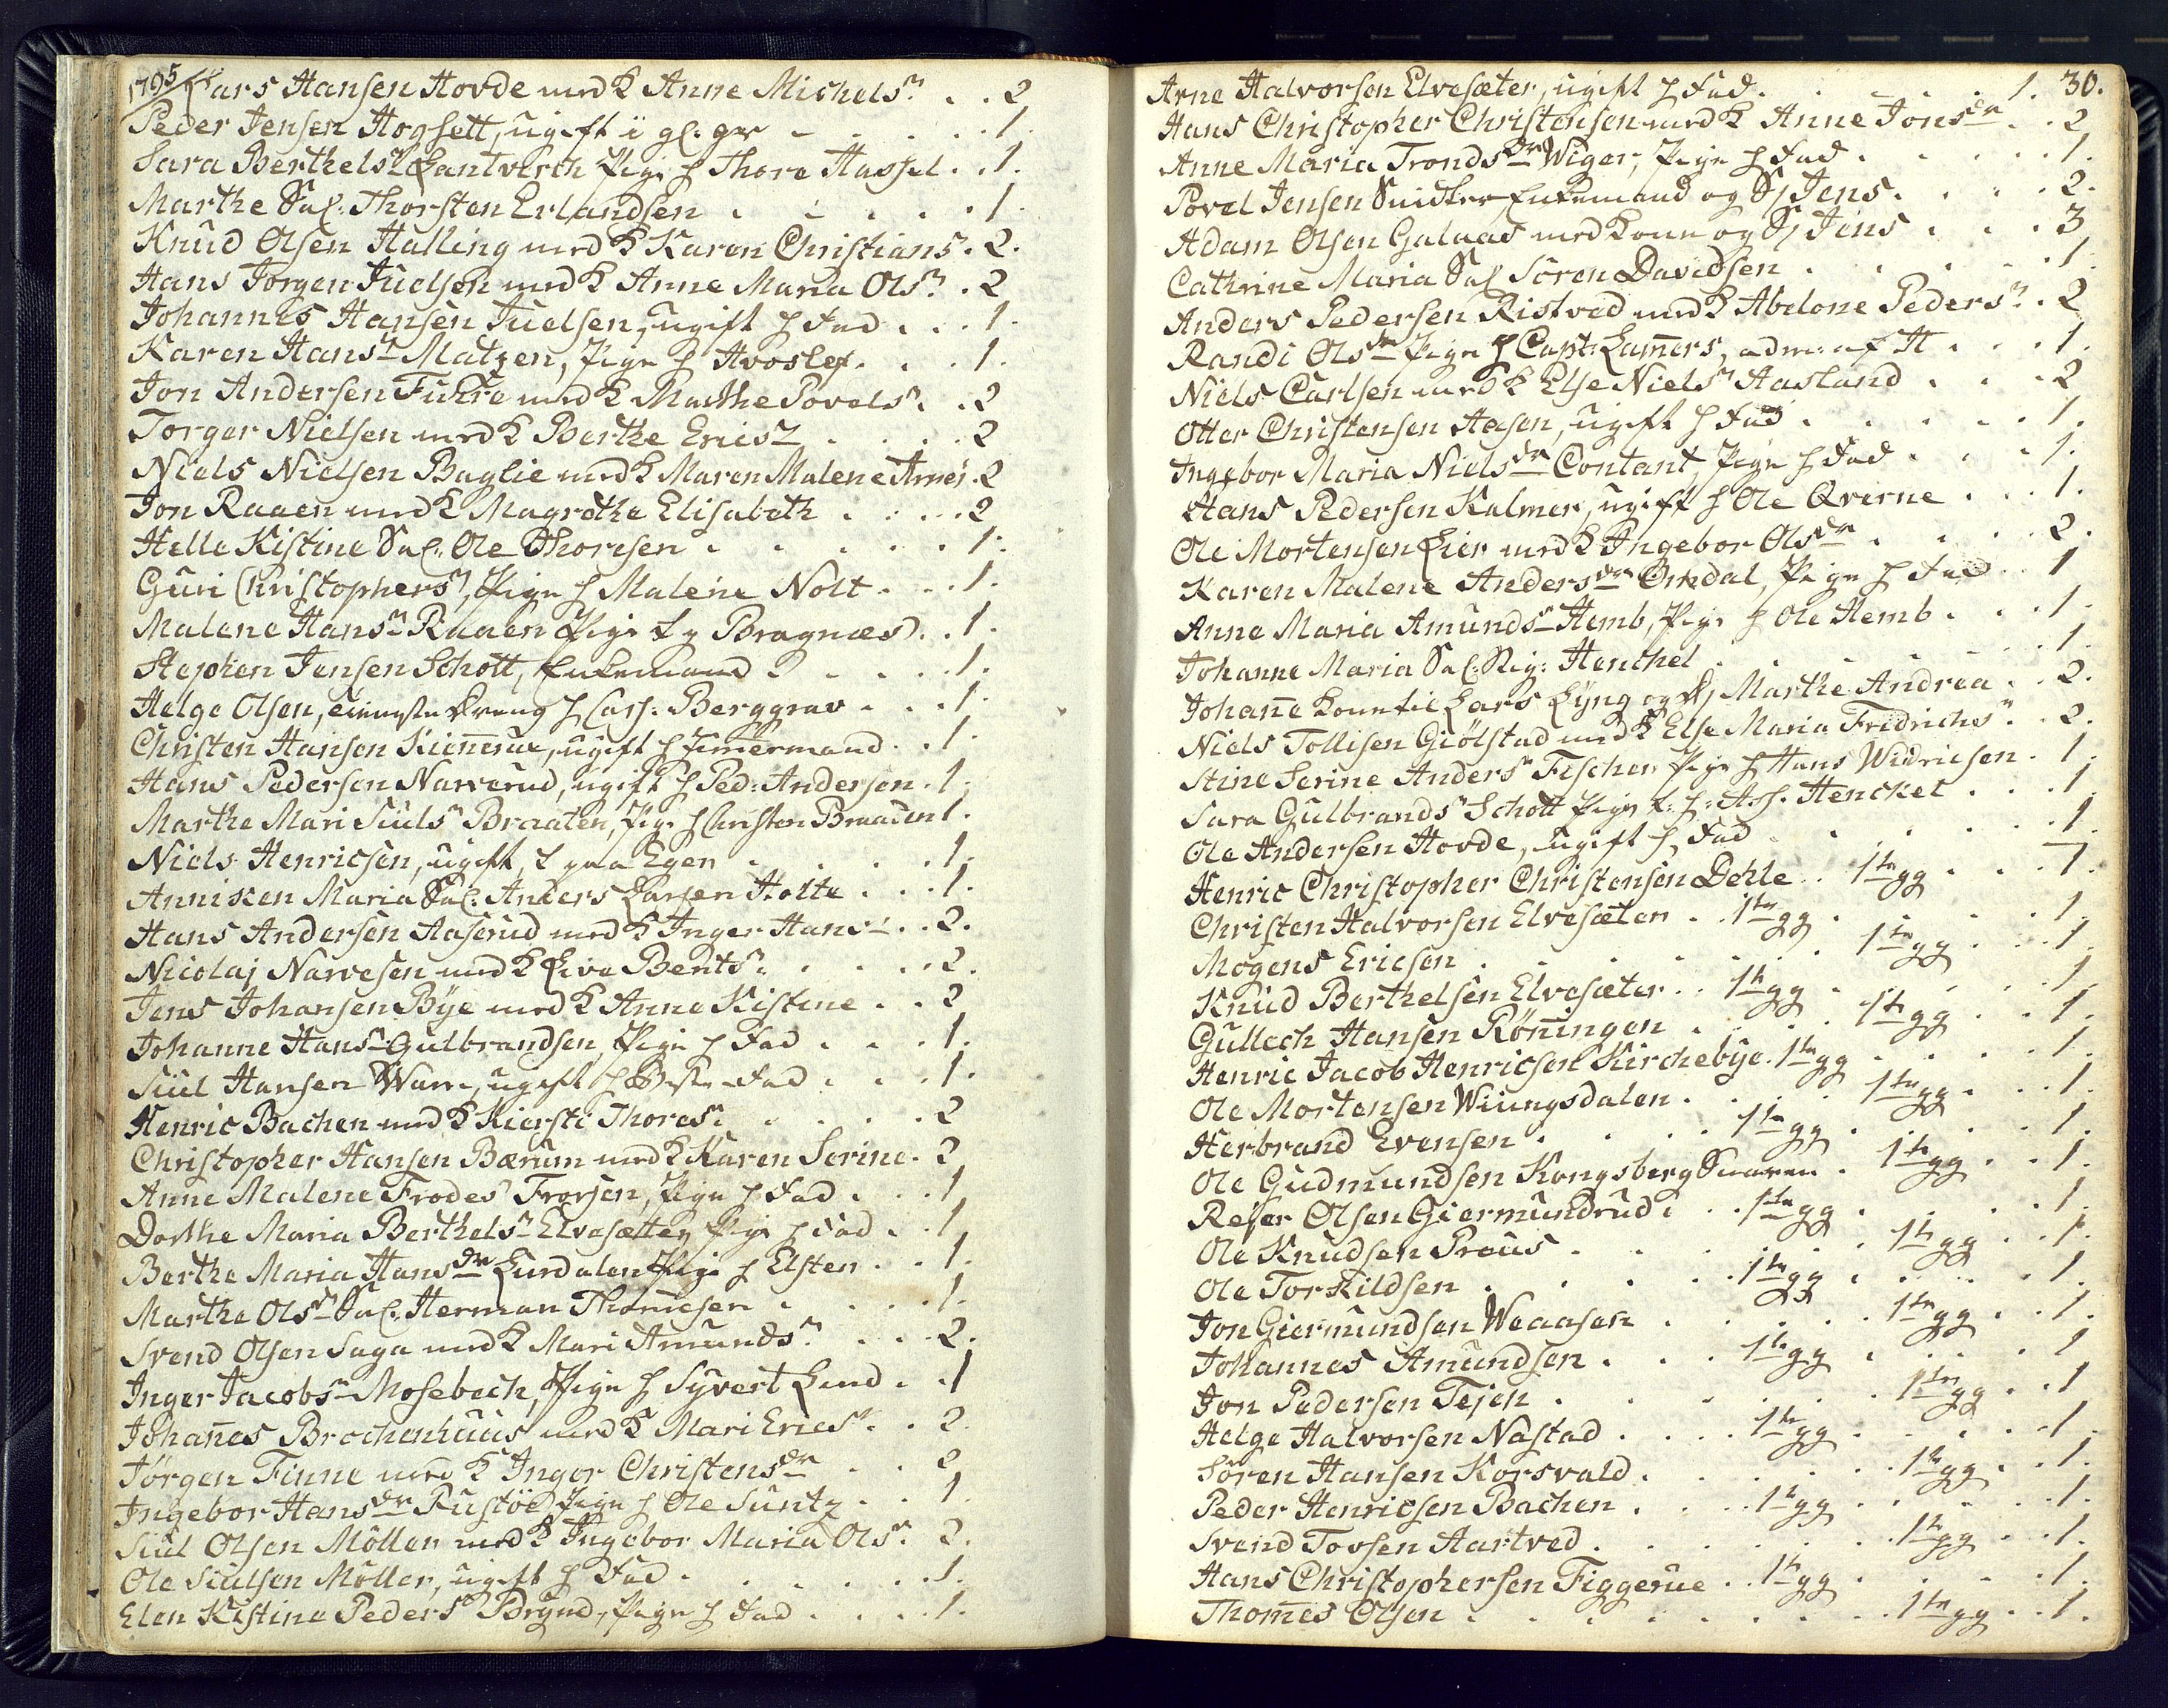 1795
Lars Hansen Hovde med K Anne Michelsn . . 2
Peder Jensen Hogsett, ugift i gl. gr . . . 1.
Sara Berthelsn Lantverch Pige h Thore Hassel . . 1.
Marthe Sal. Thorsten Erlandsen . . . . . 1.
Knud Olsen Halling med K Karen Christians . 2.
Hans Jørgen Juelsen med K Anne Maria Olsn . 2
Johannes Hansen Juelsen, ugift h Fad . . . 1.
Karen Hansn Matzen, Pige h Hvoslef . . . 1.
Jon Andersen Furre med K Marthe Povelsn . . 2
Torger Nielsen med K Berthe Ericsn . . . . 2
Niels Nielsen Baglie med K Maren Malene Arnes . 2
Jon Raaen med K Magrethe Elisabeth . . . . 2
Helle Kistine Sal. Ole Thoresen . . . . . 1.
Guri Christophersn, Pige h Malene Nolt . . . 1.
Malene Hansn Raaen Pige t y Bragnæs . . 1.
Stephen Jensen Schott, Enkemand . . . 1.
Helge Olsen, Dreng h Cass. Berggrav . . . 1.
Christen Hansen Kiennerue, ugift h Timermand . . 1.
Hans Pedersen Narverud, ugift h Ped: Andersen . 1.
Marthe Mari Siulsn Braaten, Pige h Christen Braaten 1.
Niels Henricsen, ugift, t paa Eger . . . . 1.
Annisken Maria Sal. Anders Larsen Holte . . . 1.
Hans Andersen Aaserud med K Inger Hansn . . 2.
Nicolaj Narvesen med K Live Bentsn . . . . 2.
Jens Johansen Bye med K Anne Kistine . . 2
Johanne Hansn Gulbrandsen, Pige h Fad . . . 1.
Siul Hansen Warn, ugift h Beste-Fad . . . 1.
Henric Bachen med K Kiersti Thoresn . . . . 2
Christopher Hansen Bærum med K Karen Serine . 2
Anne Malene Frodesn Frorsen, Pige h Fad . . . 1
Dorthe Maria Berthelsn Elvesætter, Pige h Fad . . 1.
Berthe Maria Hansdr Lurdalen Pige h Elsten . . 1.
Marthe Olsn Sal. Herman Thomesen . . . . 1.
Svend Olsen Saga med K Mari Amundsn . . . 2.
Inger Jacobsn Mosebech, Pige h Syvert Lund . . 1
Johanes Brochenhuus med K Mari Ericsn . . 2.
Jørgen Finne med K Inger Christensdr . . 2
Ingebor Hansdr Rustøe Pige h Ole Suntz . . 1.
Siul Olsen Möller med K Ingebor Maria Olsn 2.
Ole Siulsen Möller, ugift h Fad . . . . . 1.
Elen Kistine Pedersn Brynd, Pige h Fad . . . . 1.
30.
Arne Halvorsen Elvesæter, ugift h Fad . . . . . 1.
Hans Christopher Christensen med K Anne Jonsdr . . 2
Anne Maria Trondsdr Wiger, Pige h Fad . . . . . 1.
Povel Jensen Snidker, Enkemand og S Jens . . . . 2.
Adam Olsen Galaas med Kone og S Jens . . . 3
Cathrine Maria Sal Sören Davidsen . . . . . 1
Anders Pedersen Ristved med K Abelone Pedersn . 2
Randi Olsdr Pige h Capt: Lamers, adm: af H . . . 1.
Niels Carlsen med K Else Nielsn Aasland . . . 2
Otter Christensen Aasen, ugift h Fad . . . . . 1.
Ingebor Maria Nielsdr Contant, Pige h Fad . . . 1.
Hans Pedersen Kalmer, ugift h Ole Qverne . . . 1.
Ole Mortensen Lier med K Ingebor Olsdr . . . . 2.
Karen Malene Andersdr Omdal, Pige h Fad . . 1
Anne Maria Amundsn Hemb, Pige h Ole Hemb . . . 1.
Johanne Maria Sal: Rig: Henchel . . . . . 1.
Johane Kone til Lars Lyng og D Marthe Andrea . . 2.
Niels Tollisen Giölstad med K Else Maria Fredrichsn . . 2.
Stine Serine Andersn Fischer Pige h Hans Widricsen . 1.
Sara Gulbrandsn Schott Pige t. h: Ass. Henckel . . . 1
Ole Andersen Hovde, ugift h Fad . . . . . . 1.
Henric Christopher Christensen Dehle . 1te gg . . . 1.
Christen Halvorsen Elvesæter . . 1te gg . . . . 1.
Mogens Ericsen . . . . . . 1te gg . . . 1.
Knud Berthelsen Elvesæter . . 1te gg . . . . 1.
Gullech Hansen Röningen . . . . 1te gg . . . 1.
Henric Jacob Henricsen Kirchebye . 1te gg . . . . 1.
Ole Mortensen Wiungsdalen . . . . 1te gg . . . 1.
Herbrand Evensen . . . . 1te gg . . . . 1.
Ole Gudmundsen Kongsberg Svaren . 1te gg . . 1.
Rejer Olsen Giermundrud . . 1te gg . . . . 1.
Ole Knudsen Preus . . . . . . 1te gg . . 1.
Ole Torkildsen . . . . . 1te gg . . . . 1.
Jon Giermundsen Weaasen . . . . . 1te gg . . 1.
Johannes Amundsen . . . 1te gg . . . . 1
Jon Pedersen Tejen . . . . . . 1te gg . . 1
Helge Halvorsen Nastad . . . . 1te gg . . . . 1.
Sören Hansen Korsvald . . . . . 1te gg . . . 1.
Peder Henricsen Bachen . . . . 1te gg . . . . 1.
Svend Tovsen Aartved . . . . . . 1te gg . . 1.
Hans Christophersen Figgerue . . 1te gg . . . . 1.
Thomes Olsen . . . . . . . . 1te gg . . 1.